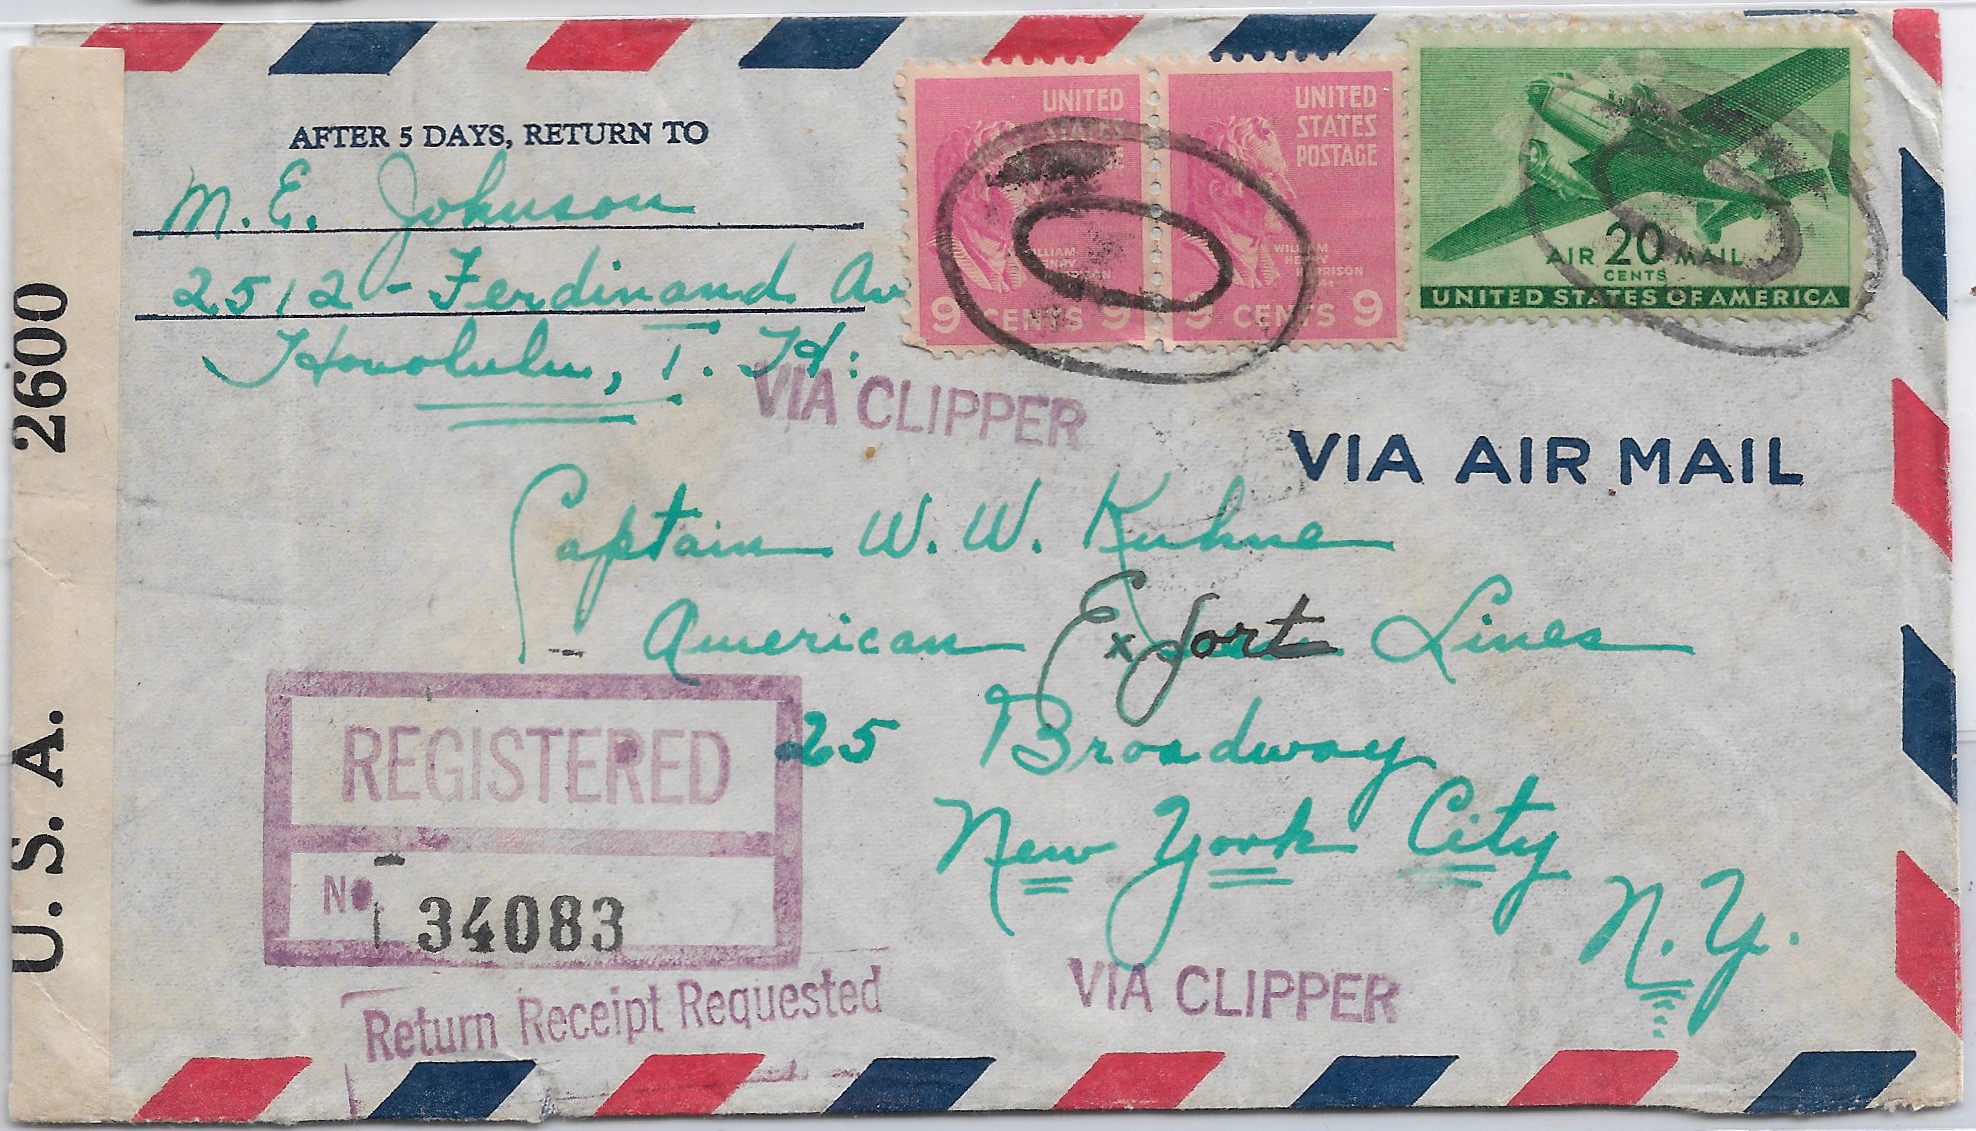 AFTER 5 DAYS, RETURN TO
M. E. Johnson
2512 - Ferdinand Av
Honolulu, T. H.
UNITED
STATES
9 CENTS 9
UNITED
STATES
POSTAGE
WILLIAM
HENRY
HARRISON
9 CENTS 9
AIR 20 MAIL
CENTS
UNITED STATES OF AMERICA
VIA CLIPPER
VIA AIR MAIL
Captain W. W. Kuhne
American Export Lines
25 Broadway
New York City
N. Y.
REGISTERED
No. 34083
Return Receipt Requested
VIA CLIPPER
U. S. A. 2600